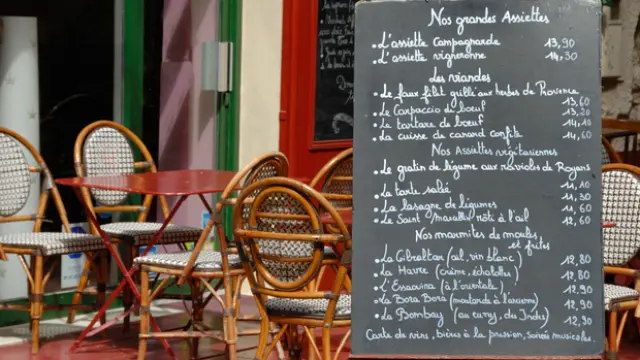 Nos grandes Assiettes
• L'assiette Campagnarde 13,90
• L'assiette vigneronne 14,30
Les viandes
• Le faux filet grillé aux herbes de Provence 13,60
• Le Carpaccio de bœuf 13,20
• Le tartare de bœuf 14,10
• La cuisse de canard confite 14,60
Nos Assiettes végétariennes
• Le gratin de légume aux ravioles de Royans
• La tarte salée 11,10
• La lasagne de légumes 11,30
• Le Saint Marcellin rôti à l'ail 11,60
12,60
Nos marmites de moules
et frites
• La Gibraltar (ail, vin blanc) 12,80
• La Havre (crème, échalottes) 12,80
• L'Essaouira (à l'orientale) 12,90
• La Bora Bora (moutarde à l'ancienne) 12,90
• La Bombay (au curry, du Indes) 12,90
Carte de vins, bières à la pression, Soirées musicales